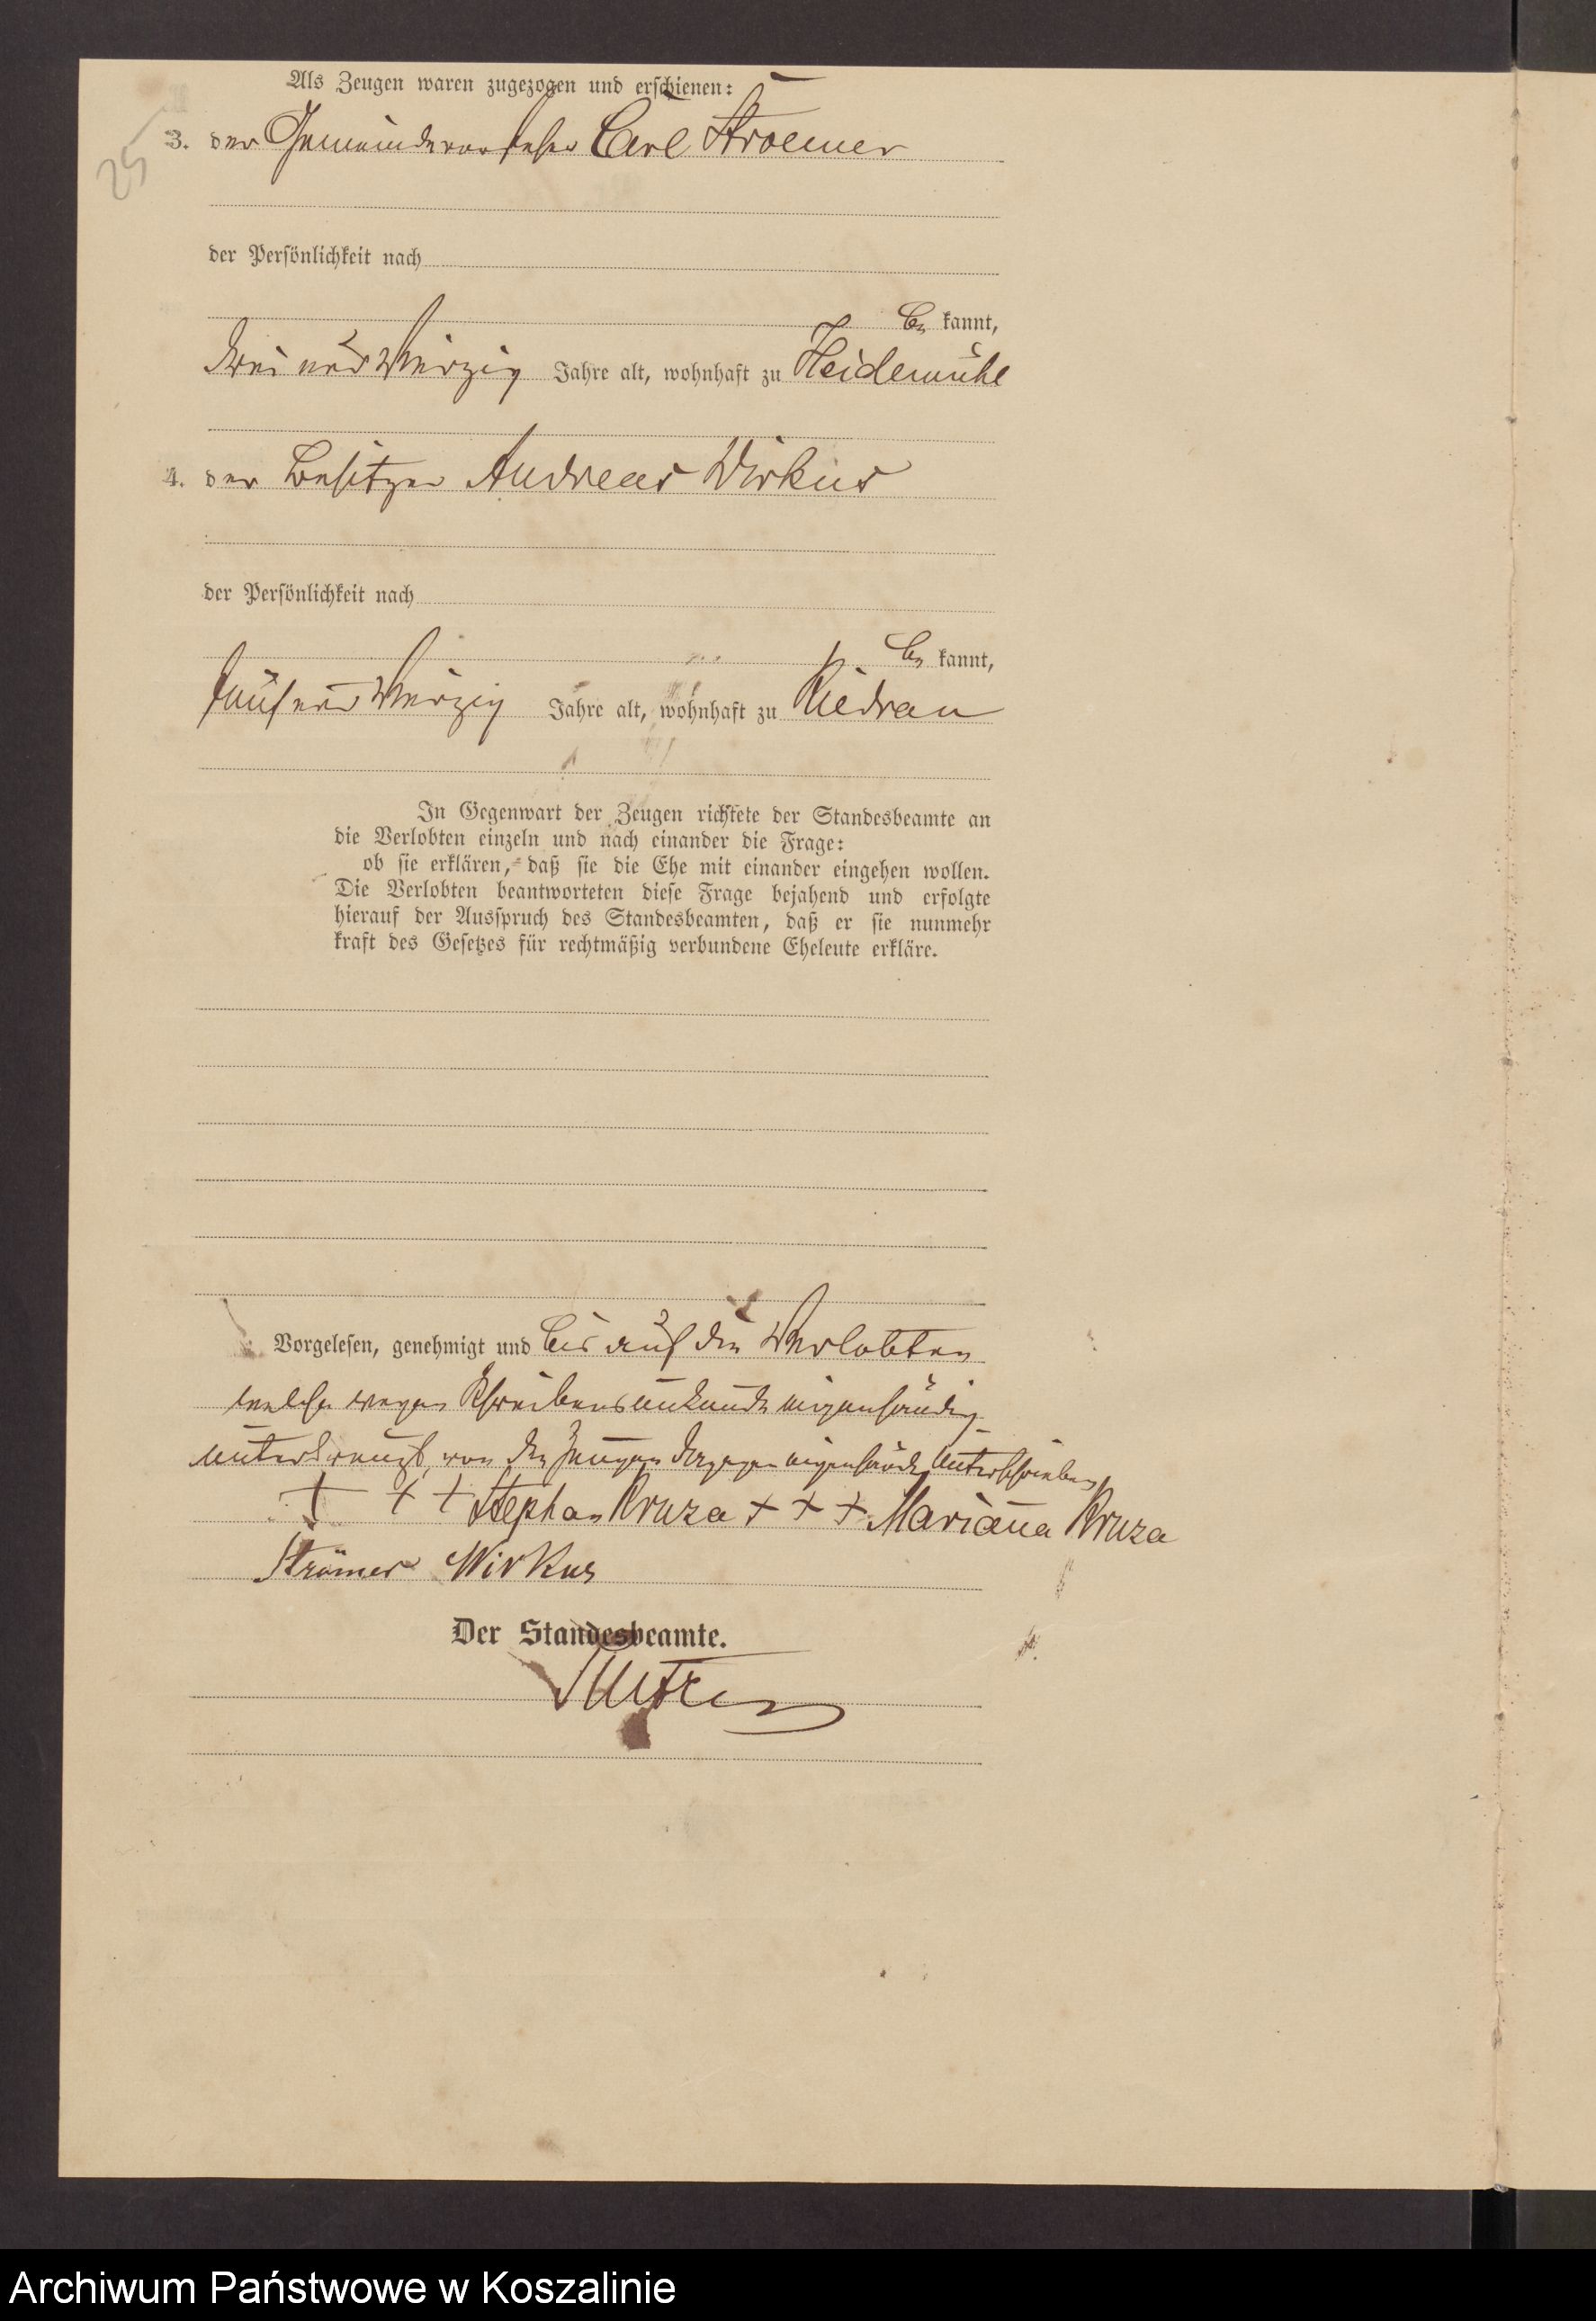 Als Zeugen waren zugezogen und erschienen:
25
3. der Gemeindevorsteher Carl Stroemer
der Persönlichkeit nach
be kannt,
drei und vierzig Jahre alt, wohnhaft zu Heidemühl
4. der Besitzer Andreas Wirkus
der Persönlichkeit nach
be kannt,
fünf und vierzig Jahre alt, wohnhaft zu
In Gegenwart der Zeugen richtete der Standesbeamte an
die Verlobten einzeln und nach einander die Frage:
ob sie erklären, daß sie die Ehe mit einander eingehen wollen.
Die Verlobten beantworteten diese Frage bejahend und erfolgte
hierauf der Ausspruch des Standesbeamten, daß er sie nunmehr
kraft des Gesetzes für rechtmäßig verbundene Eheleute erkläre.
Vorgelesen, genehmigt und bis auf die Verlobten
welche wegen Schreibensunkunde eigenhändig
unterkreuzt, von den Zeugen dagegen eigenhändig unterschrieben
+ + + Stephan Kruza + + + Mariana Kruza
Strömer Wirkus
Der Standesbeamte.
Archiwum Państwowe w Koszalinie